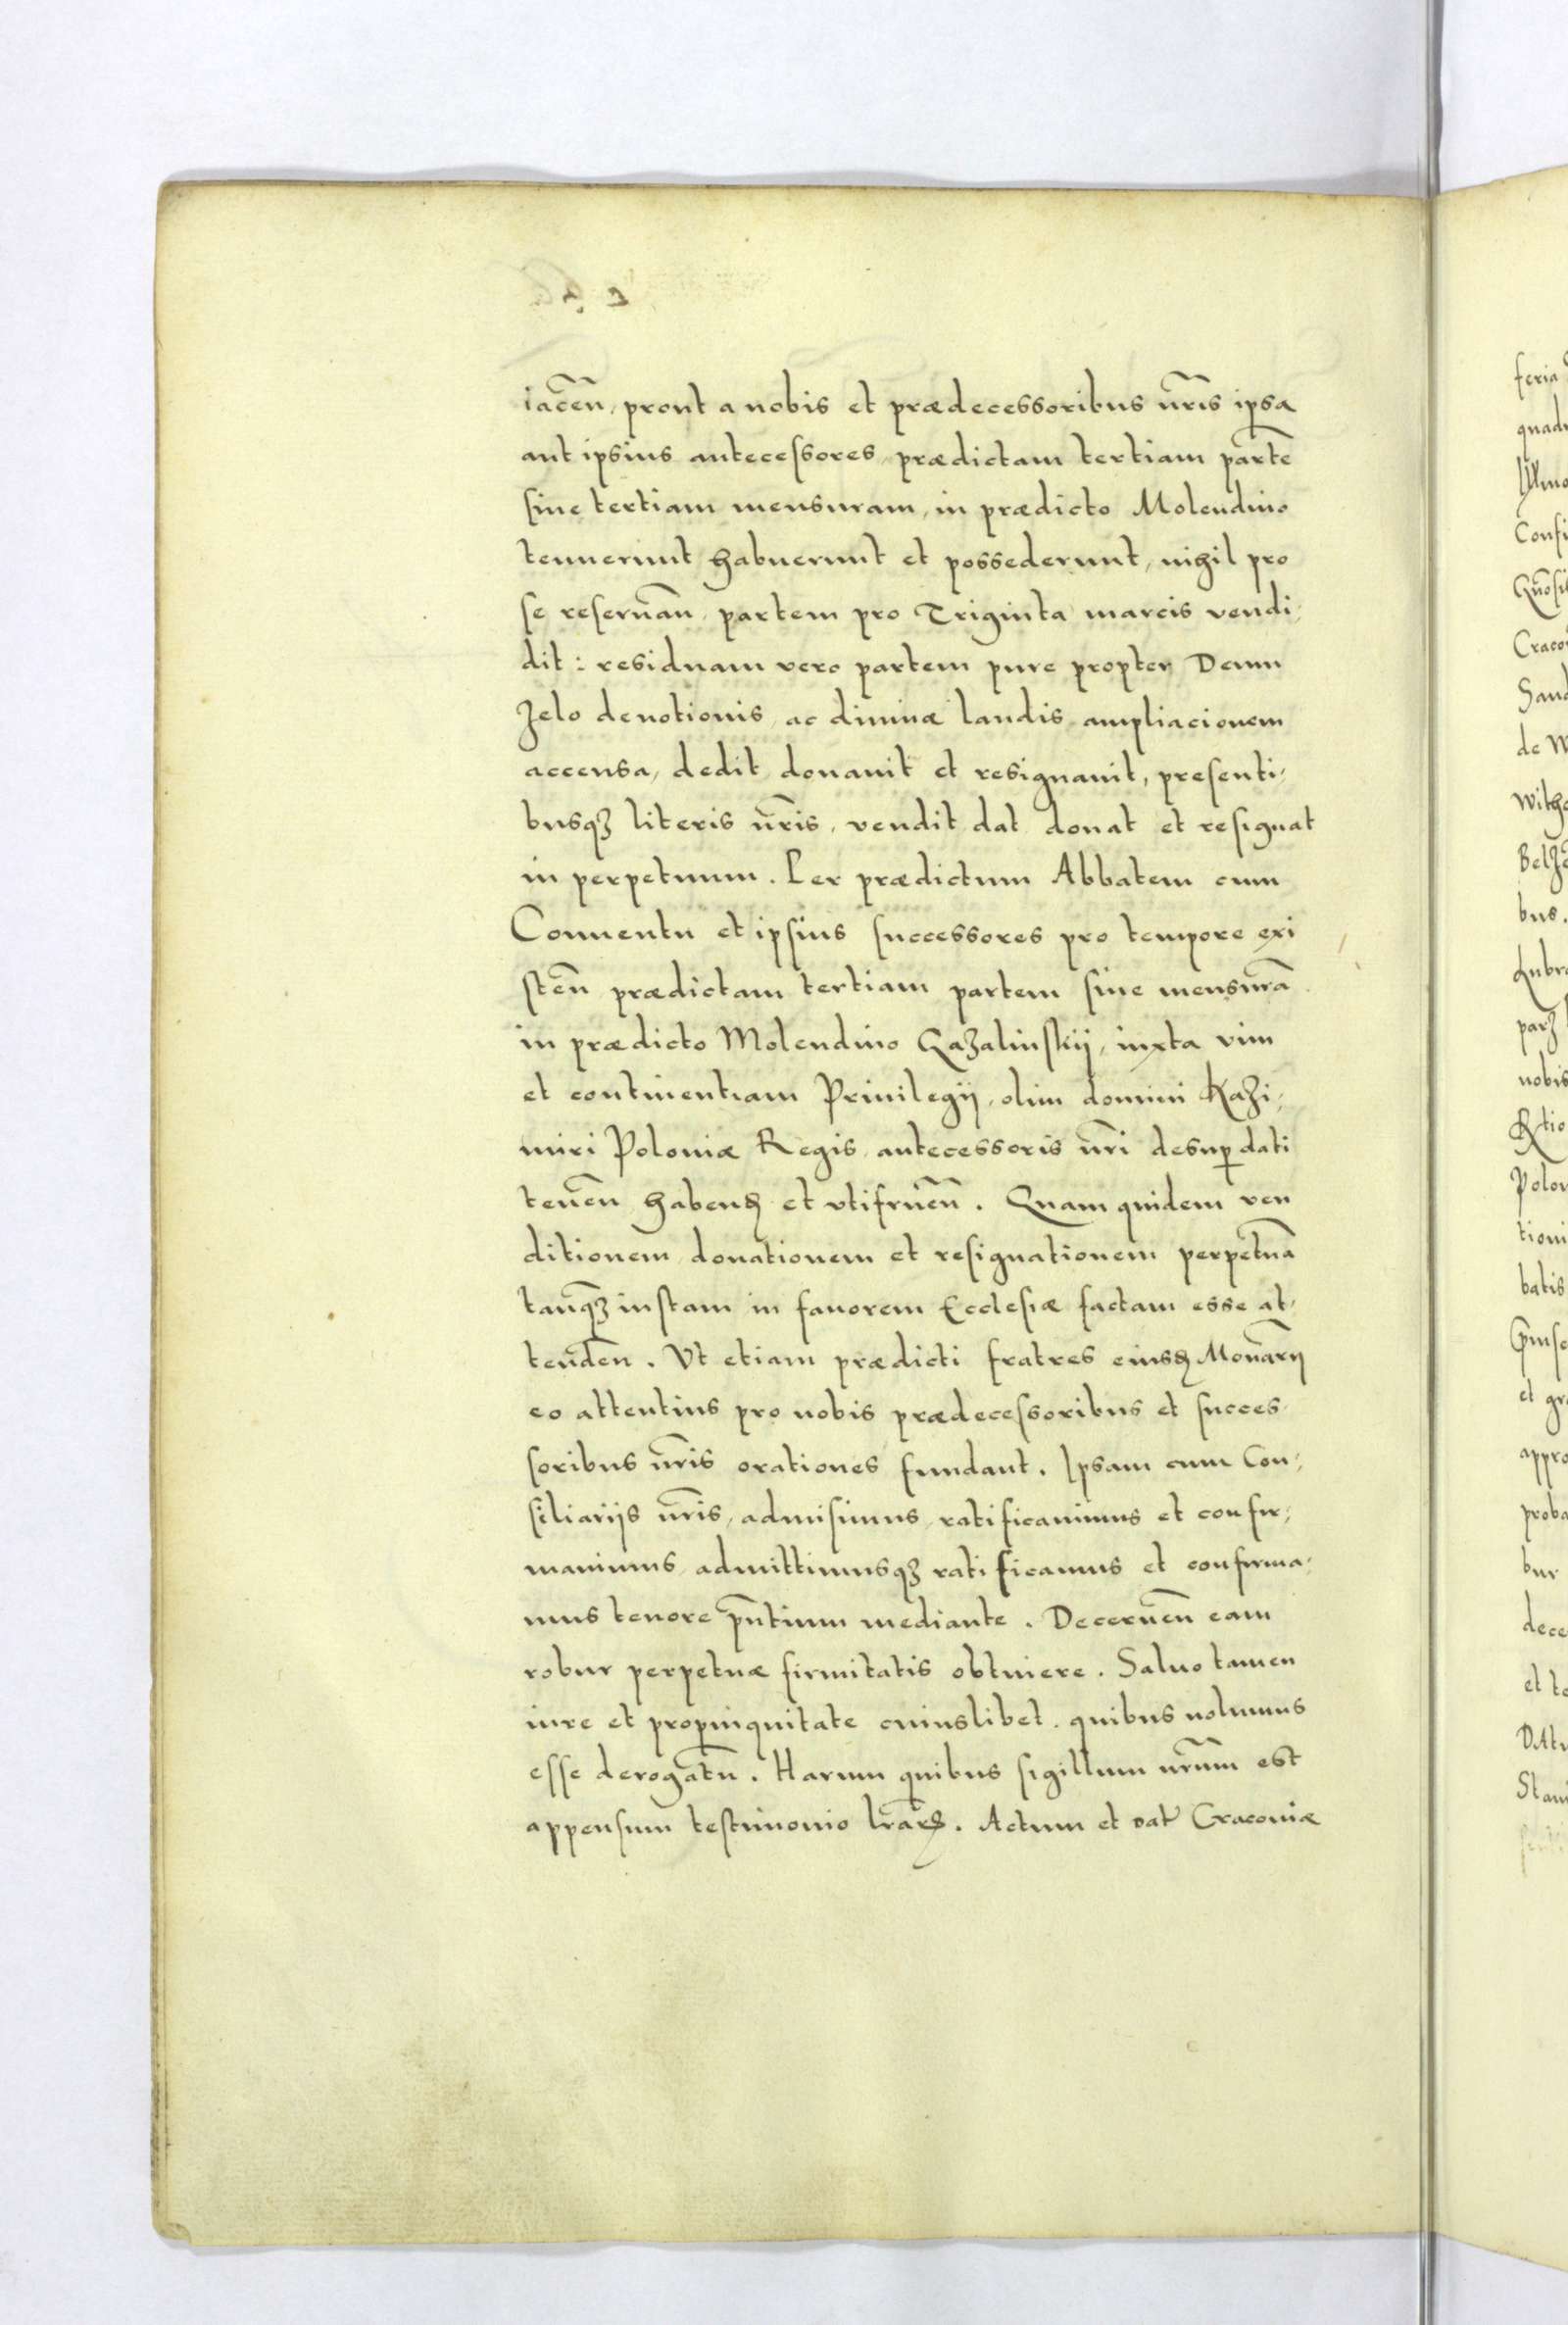 iaceñ, prout a nobis et prædecessoribus nr̃is ipsa
aut ipsius antecessores, prædictam tertiam parte᷈
siue tertiam mensuram, in prædicto Molendino
tenuerunt habuerunt et possederunt, nihil pro
se reseruañ, partem pro Triginta marcis vendi,
dit: residuam vero partem pure propter Deum
zelo deuotionis, ac diuinæ laudis ampliacionem
accensa, dedit donauit et resignauit, presenti,
busqꝫ literis nr̃is, vendit dat donat et resignat
in perpetuum. Per prædictum Abbatem cum
Conuentu et ipsius successores pro tempore exi
steñ prædictam tertiam partem siue mensurã
in prædicto Molendino Gazalinskij, iuxta vim
et continentiam Priuilegij, olim domini Kazi,
miri Poloniæ Regis, antecessoris nr̃i desuꝑ dati
teneñ habenꝺ et vtifrueñ. Quam quidem ven
ditionem donationem et resignationem perpetuã
tanqꝫ iustam in fauorem Ecclesiæ factam esse at,
tendeñ. Vt etiam prædicti fratres eiusꝺ Monãrij
eo attentius pro nobis prædecessoribus et succes
soribus nr̃is orationes fundant. Ipsam cum Con,
siliarijs nr̃is, admisimus, ratificauimus et confir,
mauimus, admittimusqꝫ ratificamus et confirma,
mus tenore pñtium mediante. Decerneñ eam
robur perpetuæ firmitatis obtinere. Saluo tamen
iure et propinquitate cuiuslibet. quibus nolumus
esse derogatũ. Harum quibus sigillum nr̃um est
appensum testimonio lr̃aꝝ. Actum et Dat Cracouiæ
feria
Confi
Craco
de W
bus.
nobis
tioni
batis
appro
proba
bur
dece
Stan